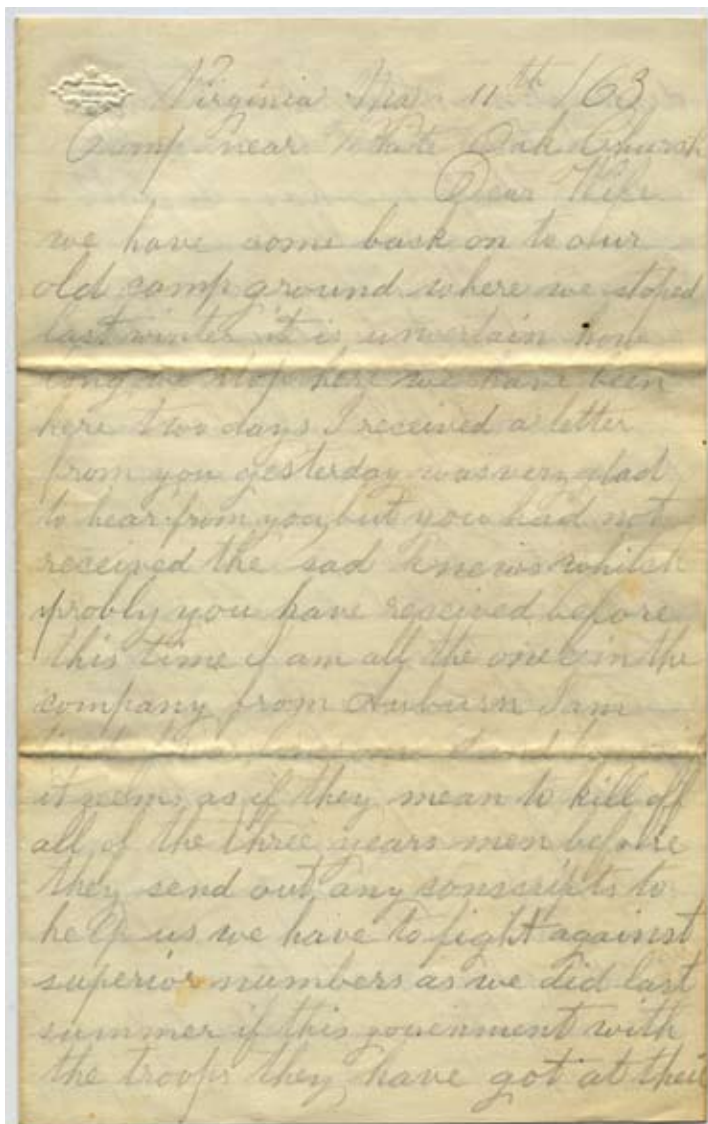 Virginia Ma 11th /63
Camp near White Oak Church
Dear Wife
we have come back on to our
old camp ground where we stoped
last winter it is uncertain how
long we stop here we have been
here two days I received a letter
from you yesterday was very glad
to hear from you but you had not
received the sad knews whitch
probly you have received before
this time I am all the one in the
company from Auburn I am
it seems as if they mean to kill off
all of the three years men before
they send out any conscripts to
help us we have to fight against
superior numbers as we did last
summer if this government with
the troops they have got at their